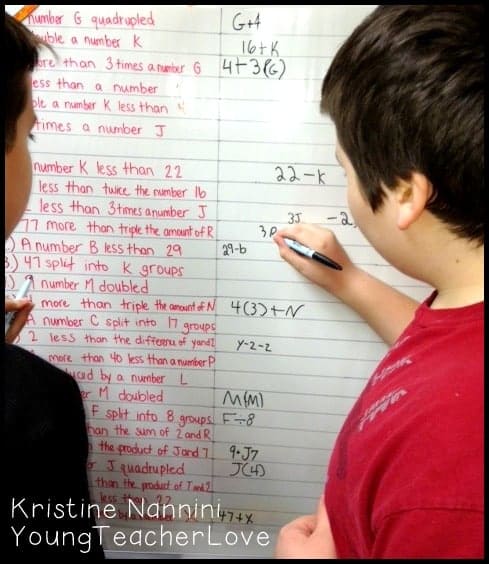 number G quadrupled G+4
double a number K 16+K
more than 3 times a number G 4+3(G)
less than a number
a number K less than 4
times a number J
number K less than 22 22-K
less than twice the number 16
less than 3 times a number J 3J -2
77 more than triple the amount of R 3R
A number B less than 29 29-b
47 split into K groups
A number M doubled
more than triple the amount of N 4(3)+N
A number C split into 17 groups
2 less than the difference of y and 2 Y-2-2
more than 40 less than a number P
by a number L
M doubled M(M)
F split into 8 groups F÷8
than the sum of 2 and R
the product of J and 7 9•J7
J quadrupled J(4)
than the product of T and 2
less than 22
47+X
Kristine Nannini
YoungTeacherLove